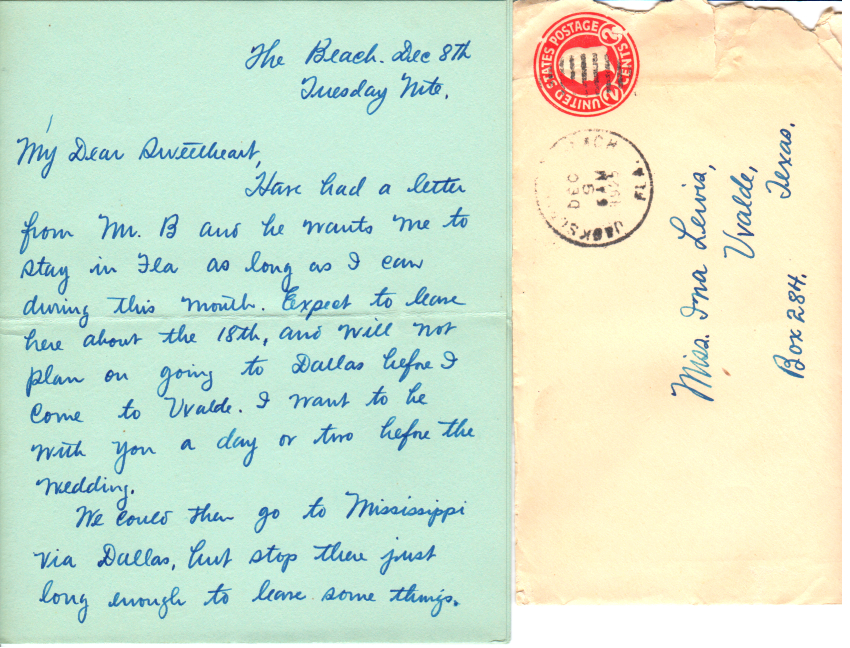 The Beach. Dec 8th
Tuesday Nite.
My Dear Sweetheart,
Have had a letter
from Mr. B and he wants me to
stay in Fla as long as I can
during this month. Expect to leave
here about the 18th, and will not
plan on going to Dallas before I
come to Uvalde. I want to be
with you a day or two before the
wedding.
We could then go to Mississippi
via Dallas, but stop there just
long enough to leave some things.
UNITED STATES POSTAGE
2 CENTS 2
DEC
9
AM
FLA.
Miss. Ina Lewis,
Uvalde,
Texas.
Box 284.